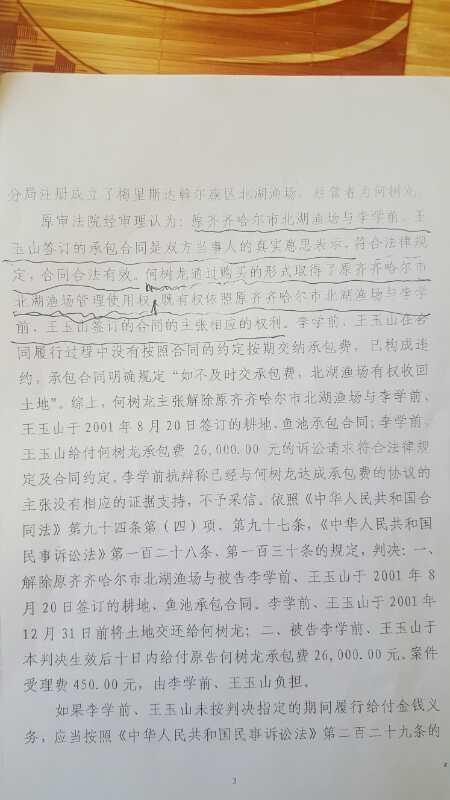 分局注册成立了梅里斯达斡尔族区北湖渔场，经营者为何树龙。
原审法院经审理认为：原齐齐哈尔市北湖渔场与李学前、王
玉山签订的承包合同是双方当事人的真实意思表示，符合法律规
定，合同合法有效。何树龙通过购买的形式取得了原齐齐哈尔市
北湖渔场管理使用权，既有权依照原齐齐哈尔市北湖渔场与李学
前、王玉山签订的合同的主张相应的权利。李学前、王玉山在合
同履行过程中没有按照合同的约定按期交纳承包费，已构成违
约，承包合同明确规定“如不及时交承包费，北湖渔场有权收回
土地”。综上，何树龙主张解除原齐齐哈尔市北湖渔场与李学前、
王玉山于2001年8月20日签订的耕地、鱼池承包合同；李学前、
王玉山给付何树龙承包费 26,000.00 元的诉讼请求符合法律规
定及合同约定。李学前抗辩称已经与何树龙达成承包费的协议的
主张没有相应的证据支持，不予采信。依照《中华人民共和国合
同法》第九十四条第（四）项、第九十七条，《中华人民共和国
民事诉讼法》第一百二十八条、第一百三十条的规定，判决：一、
解除原齐齐哈尔市北湖渔场与被告李学前、王玉山于 2001 年 8
月20日签订的耕地、鱼池承包合同。李学前、王玉山于 2001 年
12 月 31 日前将土地交还给何树龙；二、被告李学前、王玉山于
本判决生效后十日内给付原告何树龙承包费 26,000.00 元。案件
受理费 450.00 元，由李学前、王玉山负担。
如果李学前、王玉山未按判决指定的期间履行给付金钱义
务，应当按照《中华人民共和国民事诉讼法》第二百二十九条的
3